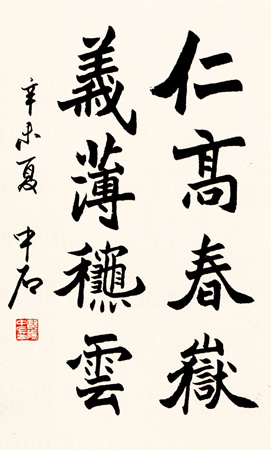 仁髙春嶽
義薄龝雲
辛未夏 中石